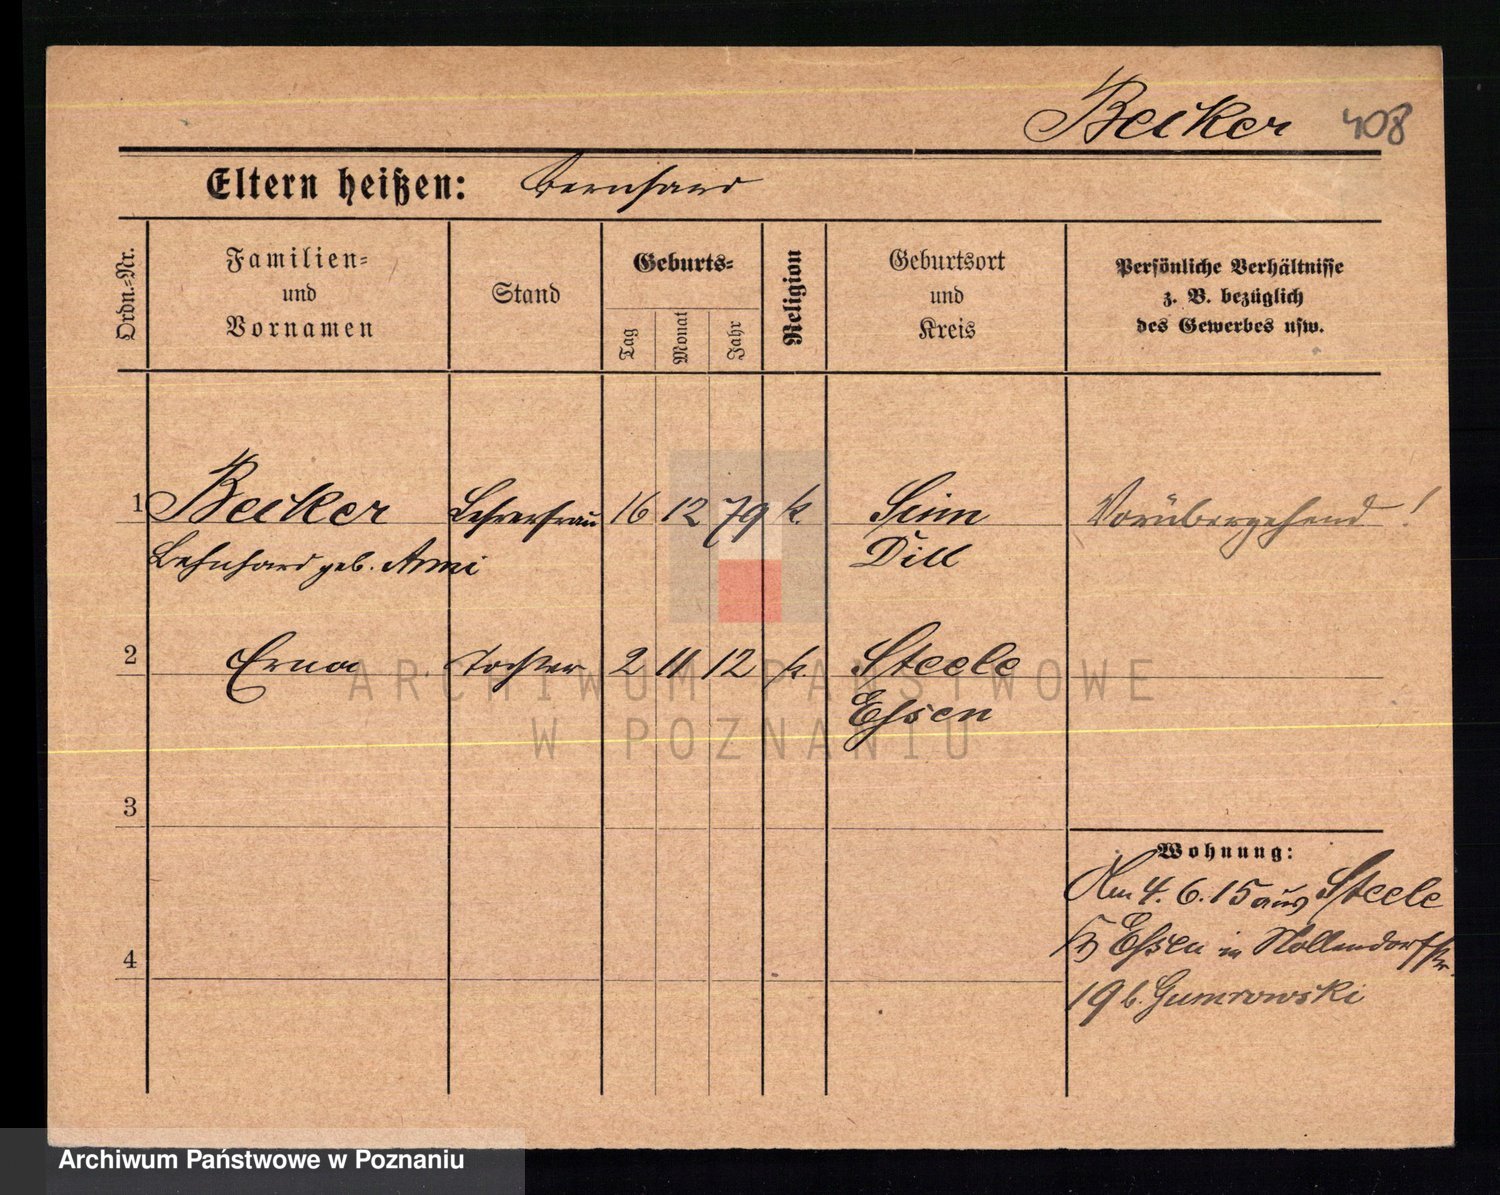 Becker 408
Eltern heißen: Bernhard
Ordn.-Nr.
Familien-
und
Vornamen
Stand
Geburts-
Tag
Monat
Jahr
Religion
Geburtsort
und
Kreis
Persönliche Verhältnisse
z. B. bezüglich
des Gewerbes usw.
1 Becker Lehrerfrau 16 12 79 k. Sinn Vorübergehend!
geb. Dill
2 Erna Tochter 2 11 12 k. Steele
Essen
3
Wohnung:
Am 4. 6. 15 aus Steele
Essen in Nollendorfstr.
4
19 b. Gumrowski
ARCHIWUM PAŃSTWOWE
W POZNANIU
Archiwum Państwowe w Poznaniu